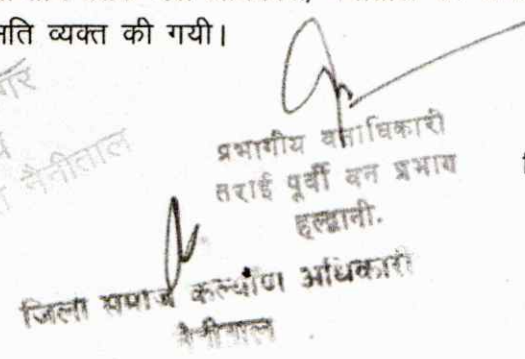 व्यक्त की गयी।
नैनीताल
प्रभागीय वनाधिकारी
तराई पूर्वी वन प्रभाग
हल्द्वानी.
जिला समाज कल्याण अधिकारी
नैनीताल